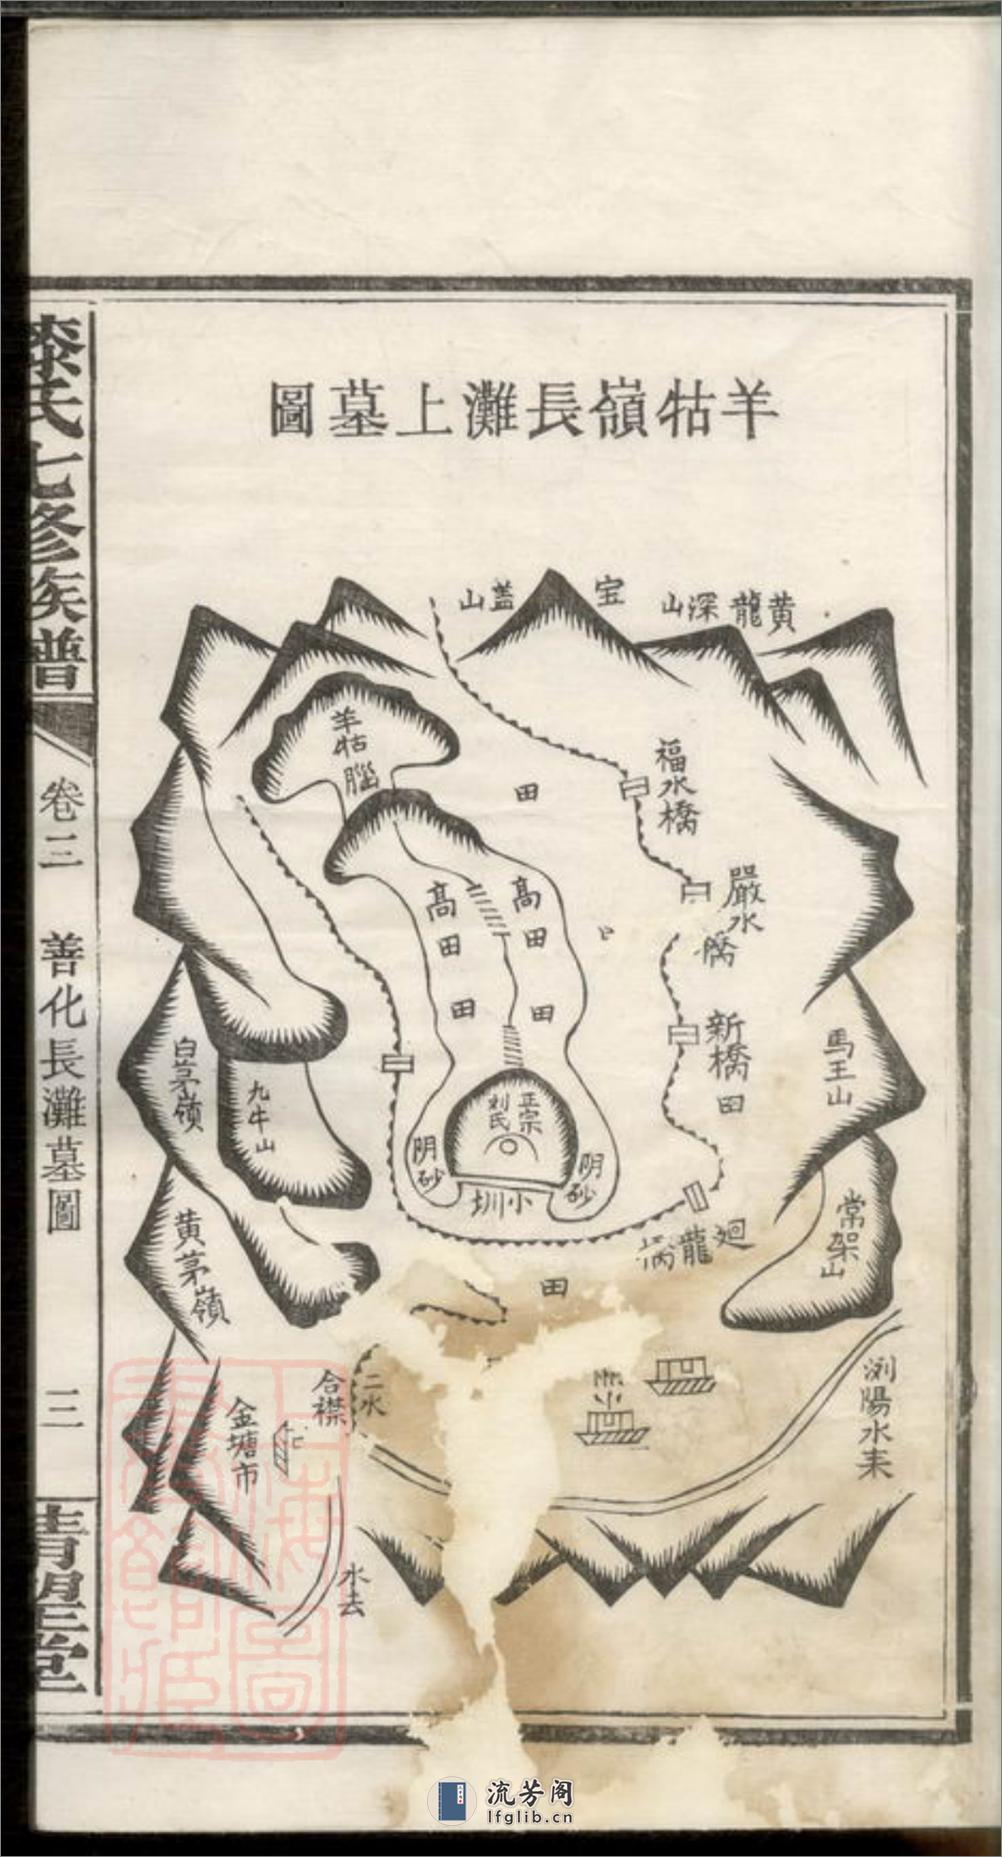 羊牯嶺長灘上墓圖
黄龍深山
宝盖山
羊牯腦
福水橋
田
嚴水橋
髙田田
髙田田
新橋
田
馬王山
常架山
白茅嶺
九牛山
黄茅嶺
正宗
刘氏
阴砂
阴砂
小圳
廻龍
田
二水合襟
金塘市
瀏陽水来
水去
氏七修族譜
卷三
善化長灘墓圖
三
青望堂
流芳阁
lfglib.cn